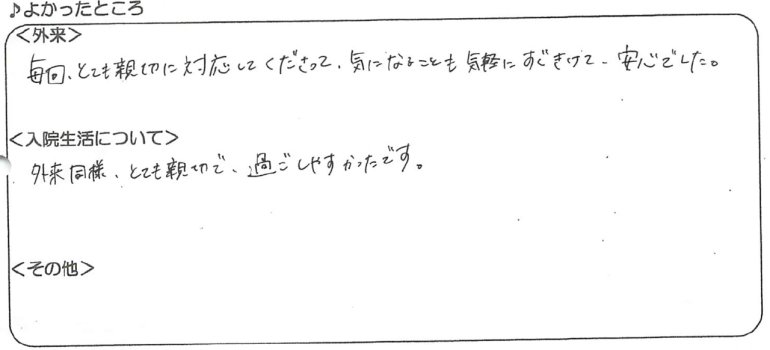 ♪よかったところ
＜外来＞
毎回、とても親切に対応してくださって、気になることも気軽にすぐきけて、安心でした。
＜入院生活について＞
外来同様、とても親切で、過ごしやすかったです。
＜その他＞